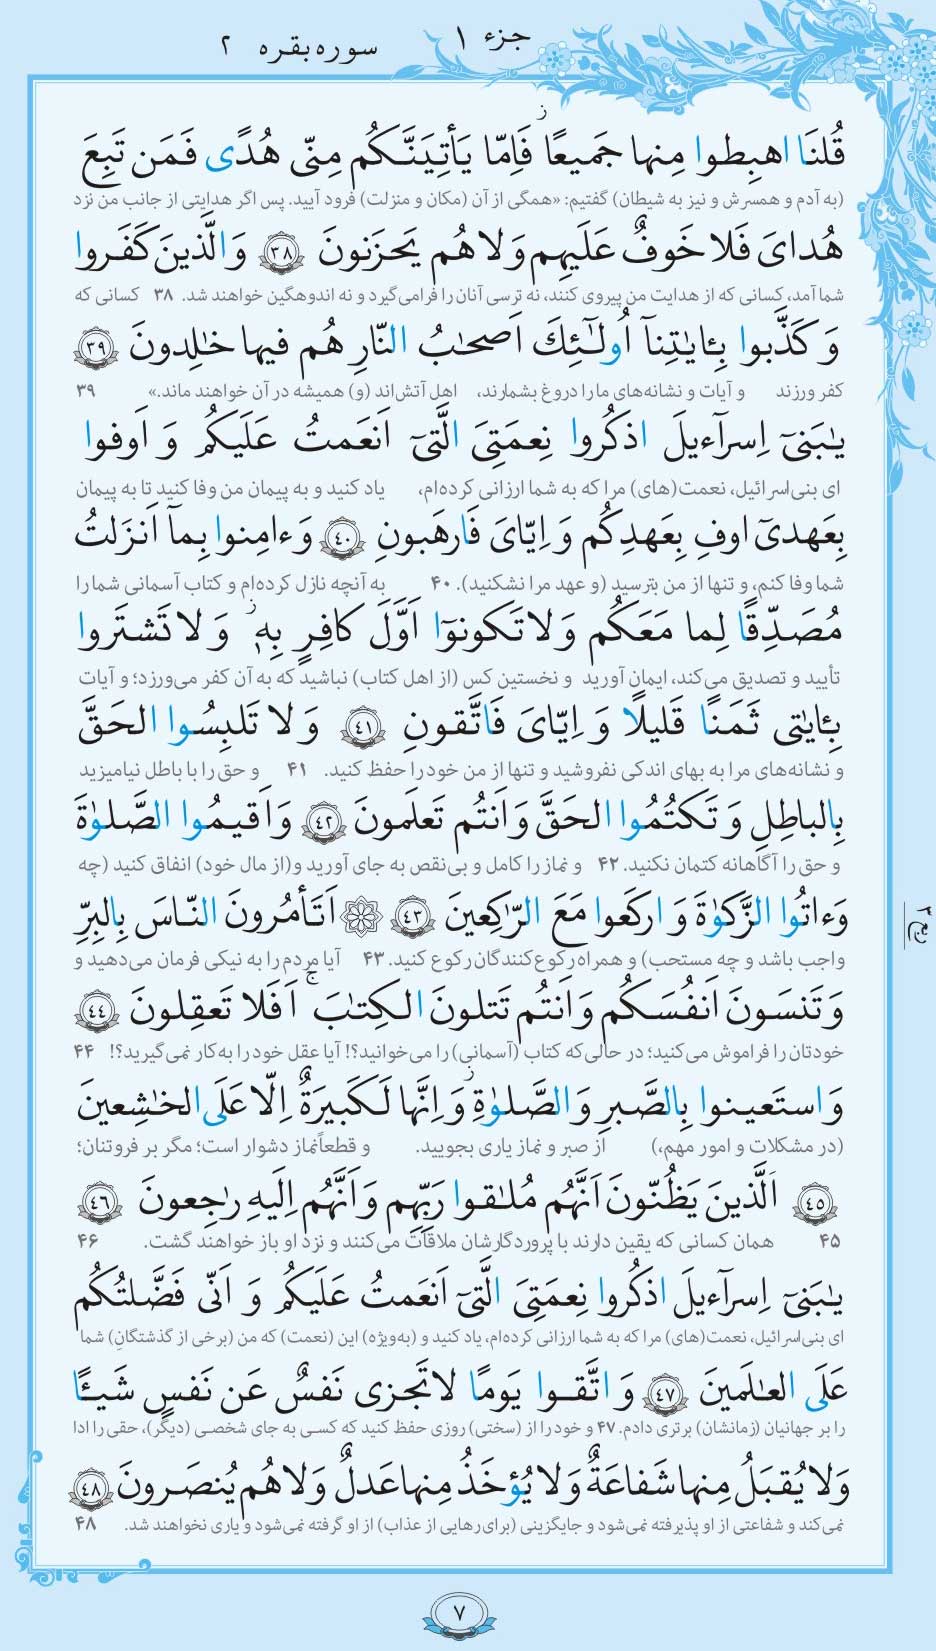 جزء ۱
سوره بقره ۲
قُلنَا اهبِطوا مِنها جَميعًا ۖ فَاِمّا يَأتِيَنَّكُم مِنّى هُدًى فَمَن تَبِعَ
(به آدم و همسرش و نیز به شیطان) گفتیم: «همگی از آن (مکان و منزلت) فرود آیید. پس اگر هدایتی از جانب من نزد
هُداىَ فَلا خَوفٌ عَلَيهِم وَلا هُم يَحزَنونَ ﴿٣٨﴾ وَالَّذينَ كَفَروا
شما آمد، کسانی که از هدایت من پیروی کنند، نه ترسی آنان را فرامی‌گیرد و نه اندوهگین خواهند شد. ۳۸ کسانی که
وَ كَذَّبوا بِـٔايٰتِنآ اُولٰٓئِكَ اَصحٰبُ النّارِ هُم فيها خٰلِدونَ ﴿٣٩﴾
کفر ورزند و آیات و نشانه‌های ما را دروغ بشمارند، اهل آتش‌اند (و) همیشه در آن خواهند ماند.» ۳۹
يٰبَنىٓ اِسرآءيلَ اذكُروا نِعمَتِىَ الَّتىٓ اَنعَمتُ عَلَيكُم وَ اَوفوا
ای بنی‌اسرائیل، نعمت(های) مرا که به شما ارزانی کرده‌ام، یاد کنید و به پیمان من وفا کنید تا به پیمان
بِعَهدىٓ اوفِ بِعَهدِكُم وَ اِيّاىَ فَارهَبونِ ﴿٤٠﴾ وَ ءامِنوا بِمآ اَنزَلتُ
شما وفا کنم، و تنها از من بترسید (و عهد مرا نشکنید). ۴۰ به آنچه نازل کرده‌ام و کتاب آسمانی شما را
مُصَدِّقًا لِما مَعَكُم وَلا تَكونوٓا اَوَّلَ كافِرٍ بِهٖ ۖ وَ لا تَشتَروا
تأیید و تصدیق می‌کند، ایمان آورید و نخستین کس (از اهل کتاب) نباشید که به آن کفر می‌ورزد؛ و آیات
بِـٔايٰتى ثَمَنًا قَليلًا وَ اِيّاىَ فَاتَّقونِ ﴿٤١﴾ وَ لا تَلبِسُوا الحَقَّ
و نشانه‌های مرا به بهای اندکی نفروشید و تنها از من خود را حفظ کنید. ۴۱ و حق را با باطل نیامیزید
بِالباطِلِ وَ تَكتُمُوا الحَقَّ وَ اَنتُم تَعلَمونَ ﴿٤٢﴾ وَ اَقيمُوا الصَّلوٰةَ
و حق را آگاهانه کتمان نکنید. ۴۲ و نماز را کامل و بی‌نقص به جای آورید و(از مال خود) انفاق کنید (چه
وَ ءاتُوا الزَّكوٰةَ وَ اركَعوا مَعَ الرّاكِعينَ ﴿٤٣﴾ ۞ اَتَأمُرونَ النّاسَ بِالبِرِّ
واجب باشد و چه مستحب) و همراه رکوع‌کنندگان رکوع کنید. ۴۳ آیا مردم را به نیکی فرمان می‌دهید و
وَ تَنسَونَ اَنفُسَكُم وَ اَنتُم تَتلونَ الكِتٰبَ ۚ اَفَلا تَعقِلونَ ﴿٤٤﴾
خودتان را فراموش می‌کنید؛ در حالی‌که کتاب (آسمانی) را می‌خوانید؟! آیا عقل خود را به‌کار نمی‌گیرید؟! ۴۴
وَ استَعينوا بِالصَّبرِ وَ الصَّلوٰةِ ۖ وَ اِنَّها لَكَبيرَةٌ اِلّا عَلَى الخٰشِعينَ
(در مشکلات و امور مهم،) از صبر و نماز یاری بجویید. و قطعاً نماز دشوار است؛ مگر بر فروتنان؛
﴿٤٥﴾ اَلَّذينَ يَظُنّونَ اَنَّهُم مُلٰقوا رَبِّهِم وَ اَنَّهُم اِلَيهِ رٰجِعونَ ﴿٤٦﴾
۴۵ همان کسانی که یقین دارند با پروردگارشان ملاقات می‌کنند و نزد او باز خواهند گشت. ۴۶
يٰبَنىٓ اِسرآءيلَ اذكُروا نِعمَتِىَ الَّتىٓ اَنعَمتُ عَلَيكُم وَ اَنّى فَضَّلتُكُم
ای بنی‌اسرائیل، نعمت(های) مرا که به شما ارزانی کرده‌ام، یاد کنید و (به‌ویژه) این (نعمت) که من (برخی از گذشتگان) شما
عَلَى العٰلَمينَ ﴿٤٧﴾ وَ اتَّقوا يَومًا لا تَجزى نَفسٌ عَن نَفسٍ شَيـًٔا
را بر جهانیان (زمانشان) برتری دادم. ۴۷ و خود را از (سختی) روزی حفظ کنید که کسی به جای شخصی (دیگر)، حقی را ادا
وَلا يُقبَلُ مِنها شَفاعَةٌ وَلا يُؤخَذُ مِنها عَدلٌ وَلا هُم يُنصَرونَ ﴿٤٨﴾
نمی‌کند و شفاعتی از او پذیرفته نمی‌شود و جایگزینی (برای رهایی از عذاب) از او گرفته نمی‌شود و یاری نخواهند شد. ۴۸
۷